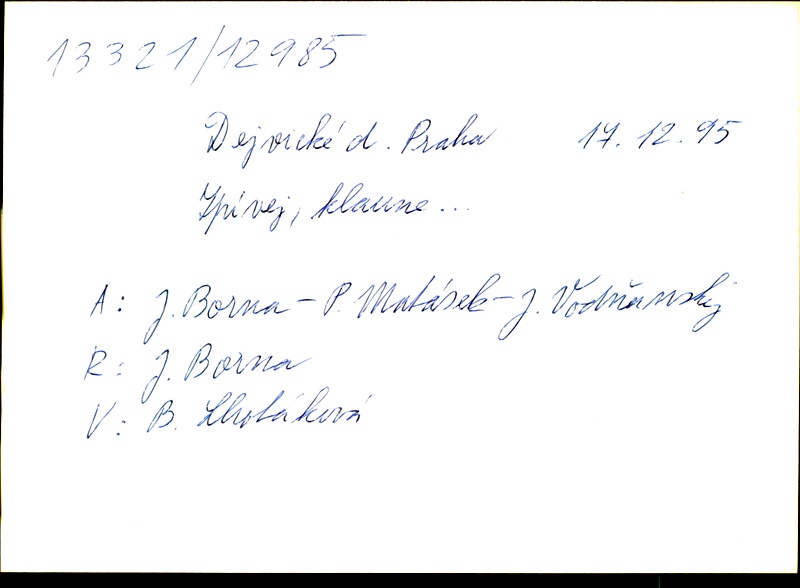 13321/12985
Dejvické d. Praha 17. 12. 95
Zpívej, klaune...
A: J. Borna - P. Matásek - J. Vodňanský
R: J. Borna
V: B. Lhotáková